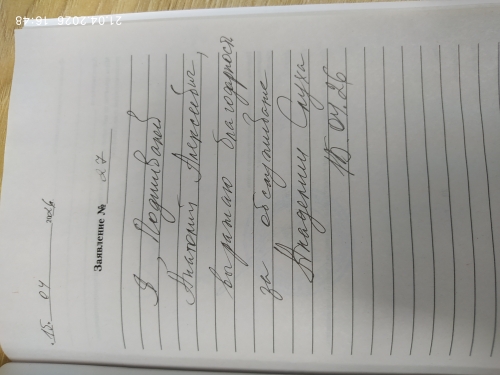 15 04 2026
Заявление № 27
Я, Подшивалов
Анатолий Алексеевич,
выражаю благодарность
за обслуживание
Академии Слуха
15.04.26
21.04.2026 16:48